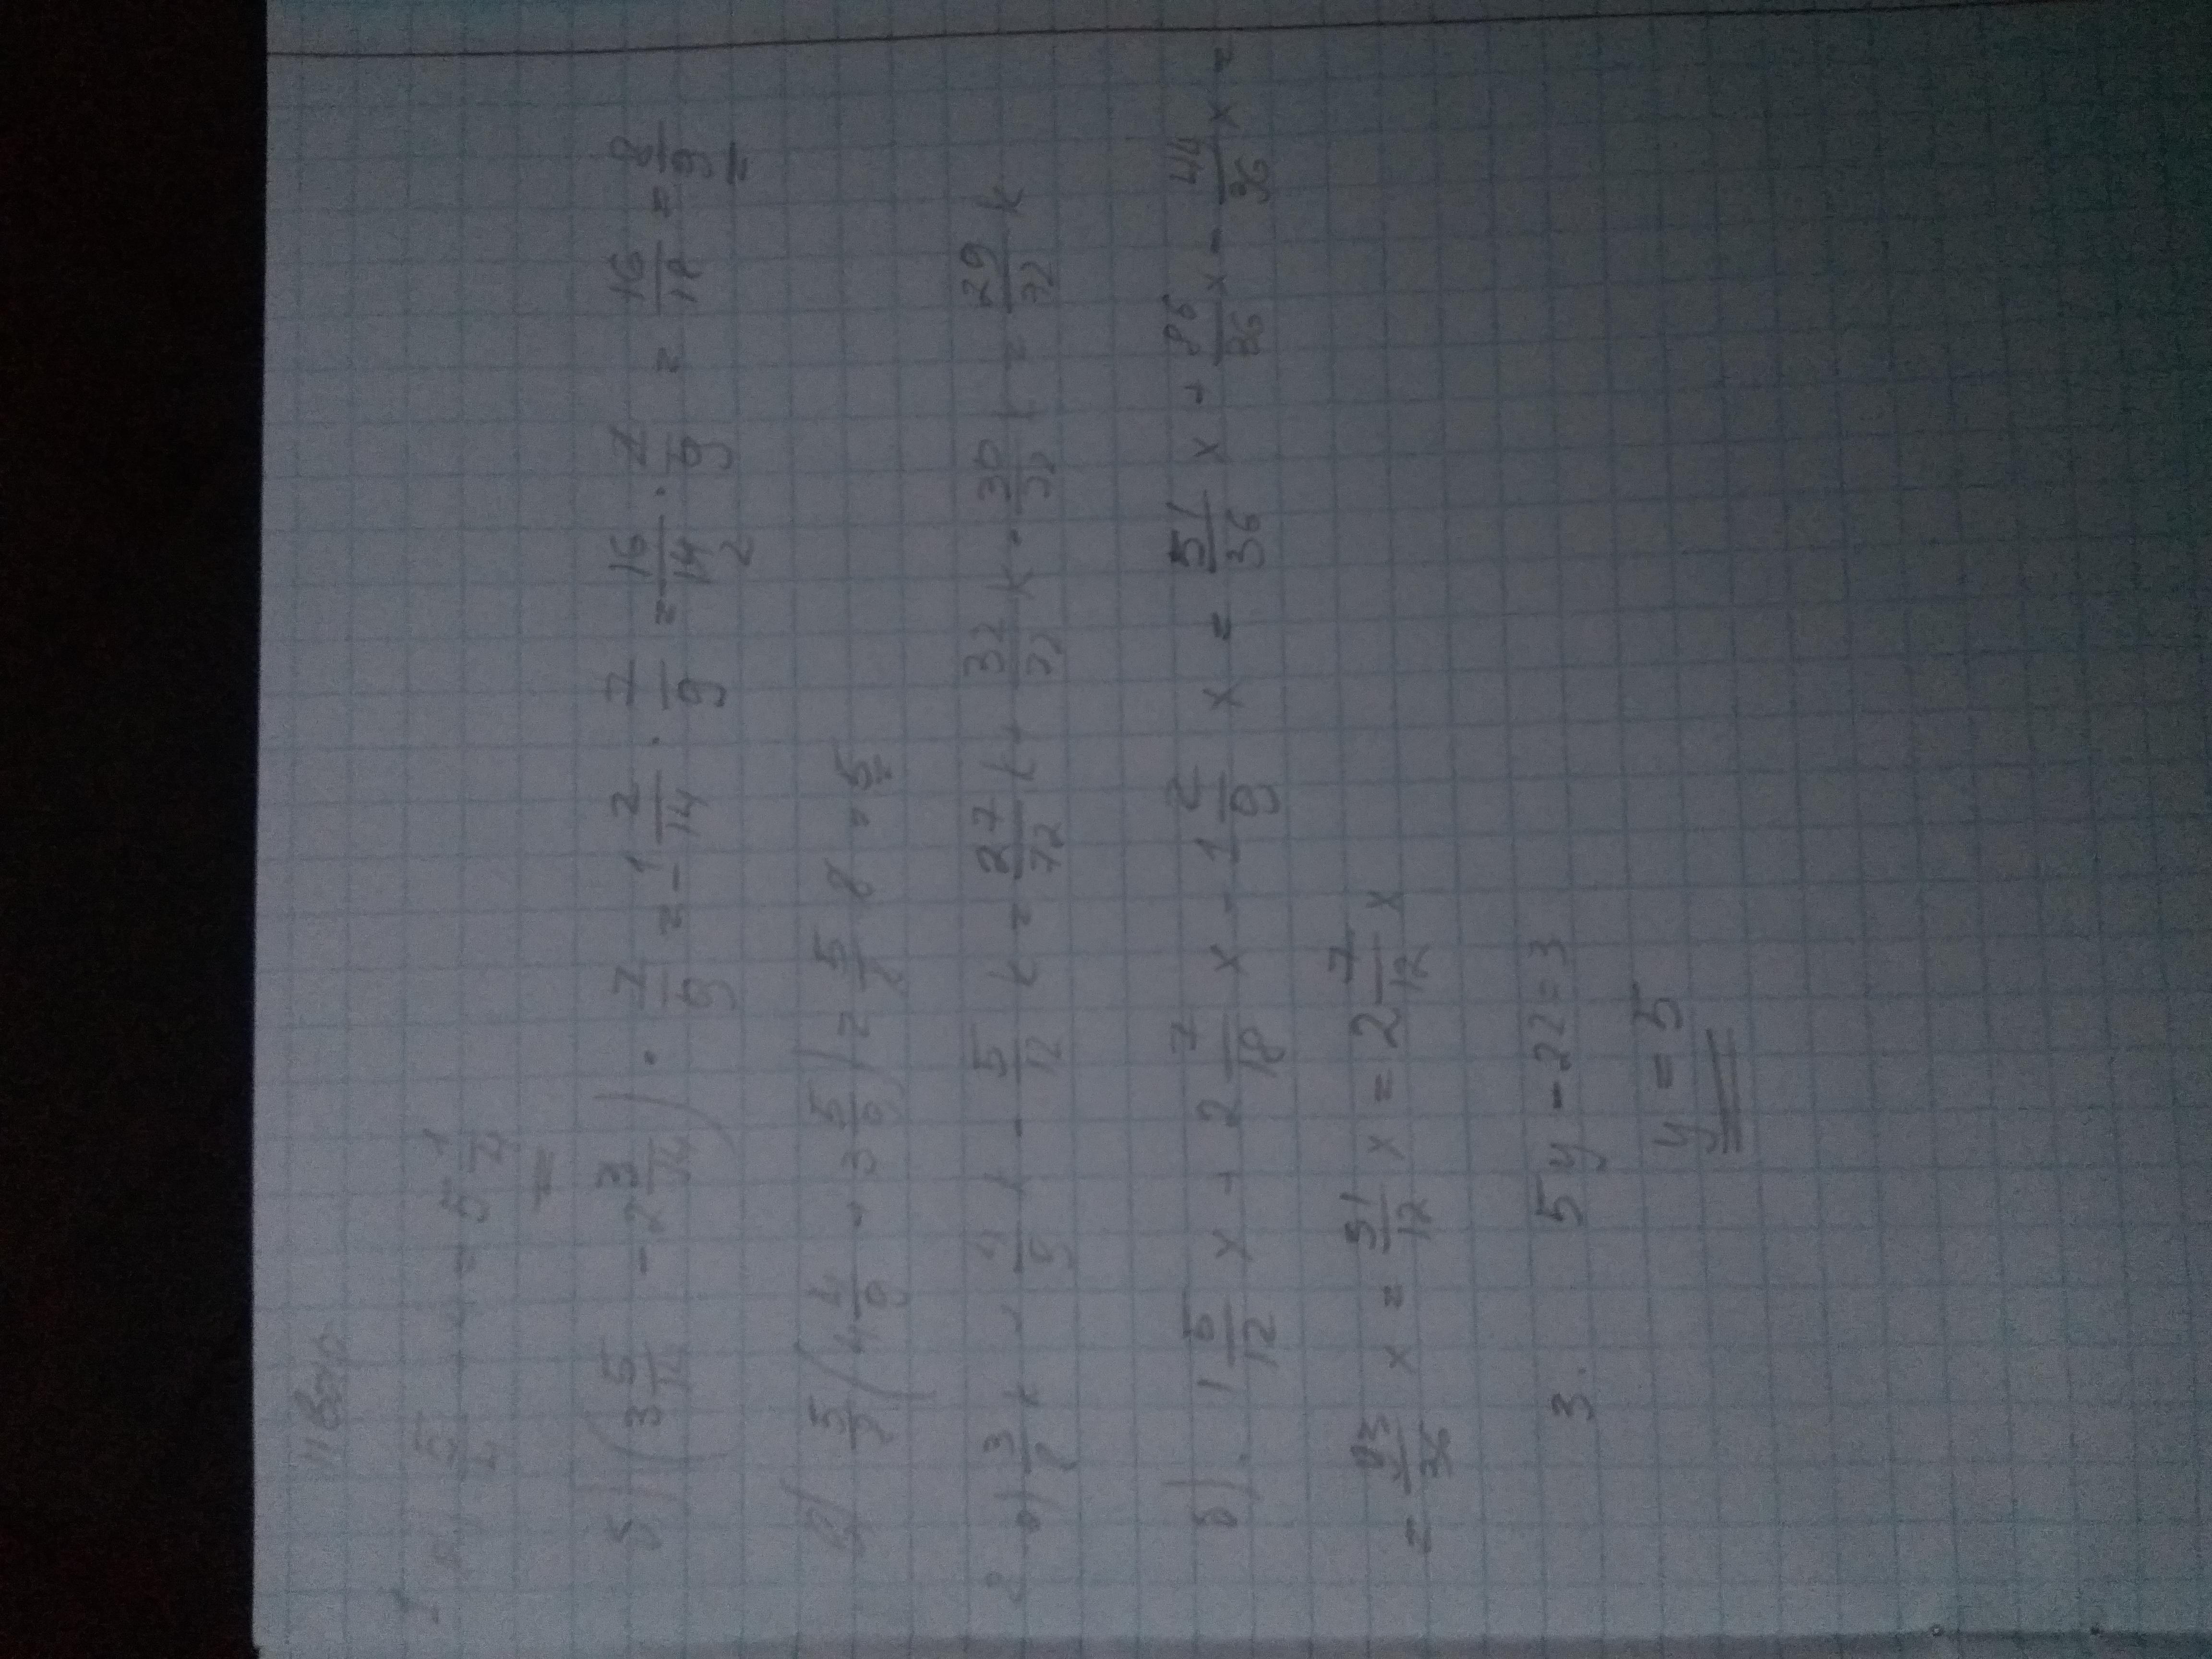 II Вар.
1 5/4 = 5 1/4
б) (3 5/14 - 2 3/14) · 7/9 = 1 2/14 · 7/9 = 16/14 · 7/9 = 16/18 = 8/9
(4 4/9 + 3 5/9) = 5/8 · 8 = 5
2 а) 3/8 k + 4/9 k - 5/12 k = 27/72 k + 32/72 k - 30/72 k = 29/72 k
б) 1 5/12 x + 2 7/18 x - 1 2/9 x = 51/36 x + 86/36 x - 44/36 x =
= 93/36 x = 31/12 x = 2 7/12 x
3. 5y - 22 = 3
y = 5